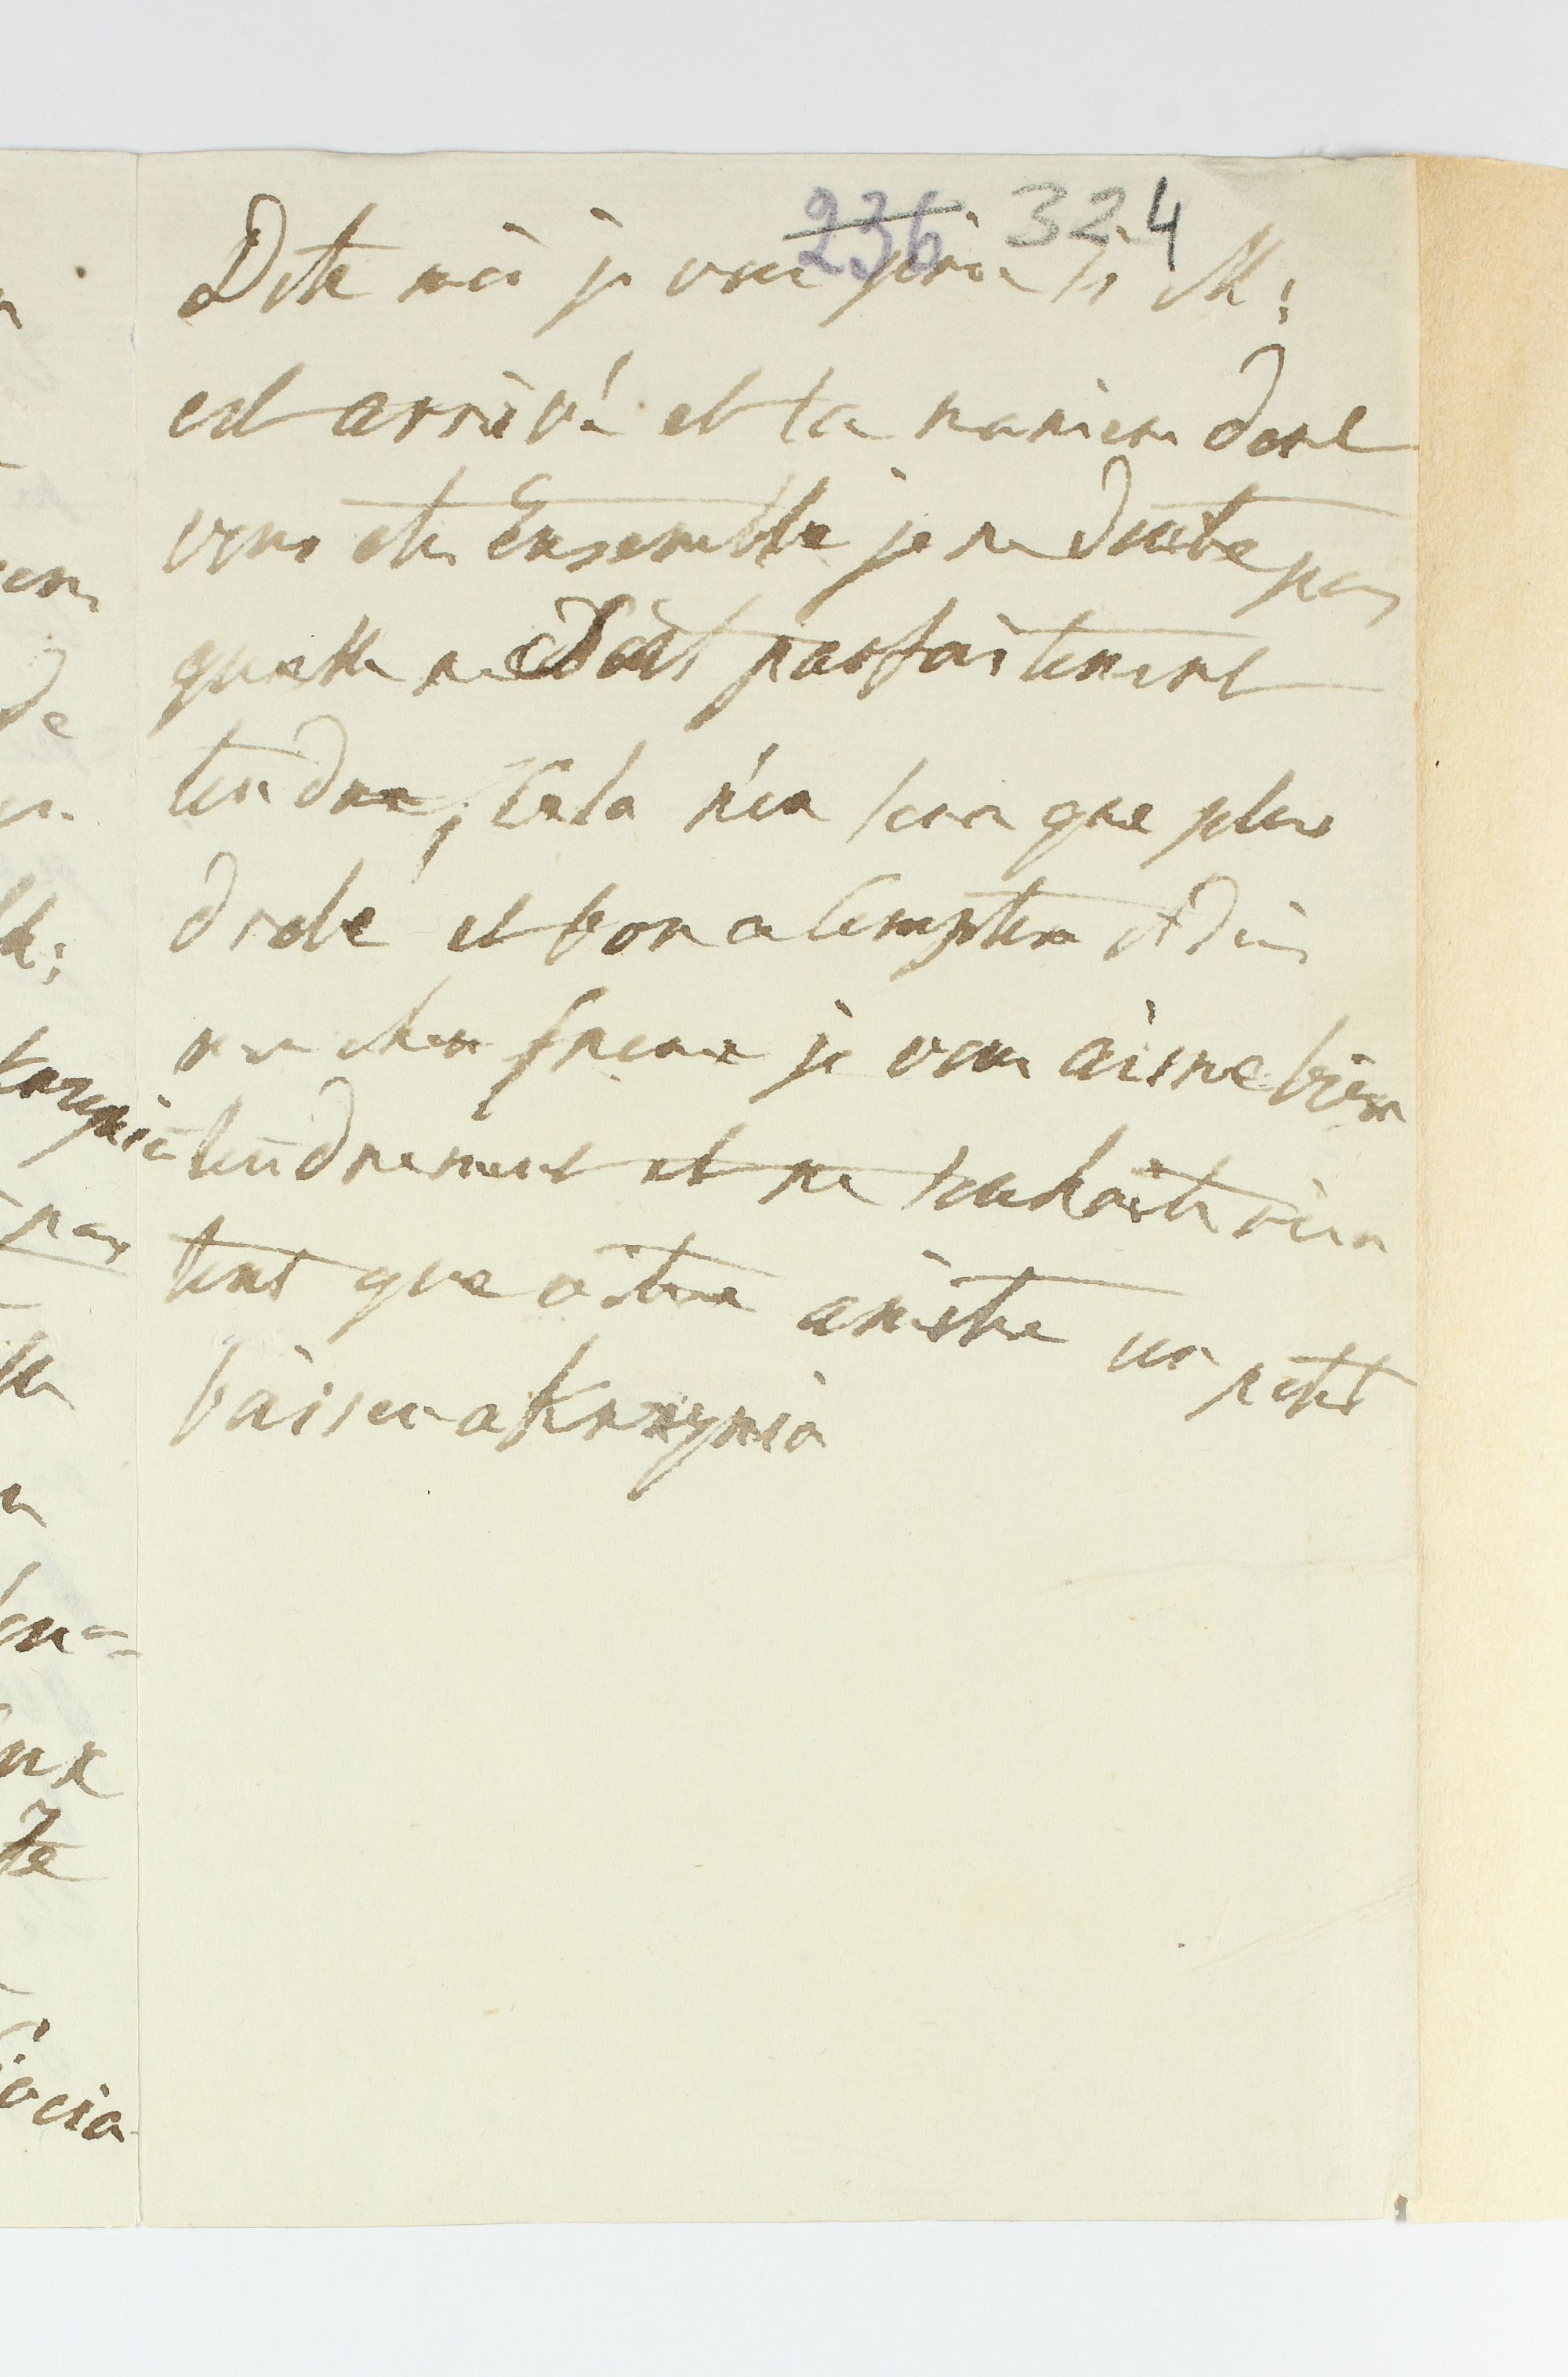 236 324
Dite moi je vous prie si M:
est arrivé et la maniere dont
vous ete Ensemble je ne doute pas
quelle ne soit parfaitement
tendre, Cela n'en sera que plus
drole et bon a Compter Adieu
mon cher frere je vous aime bien
tendrement et ne souhaite rien
tent que votre amitié un petit
baiser a Krzysia